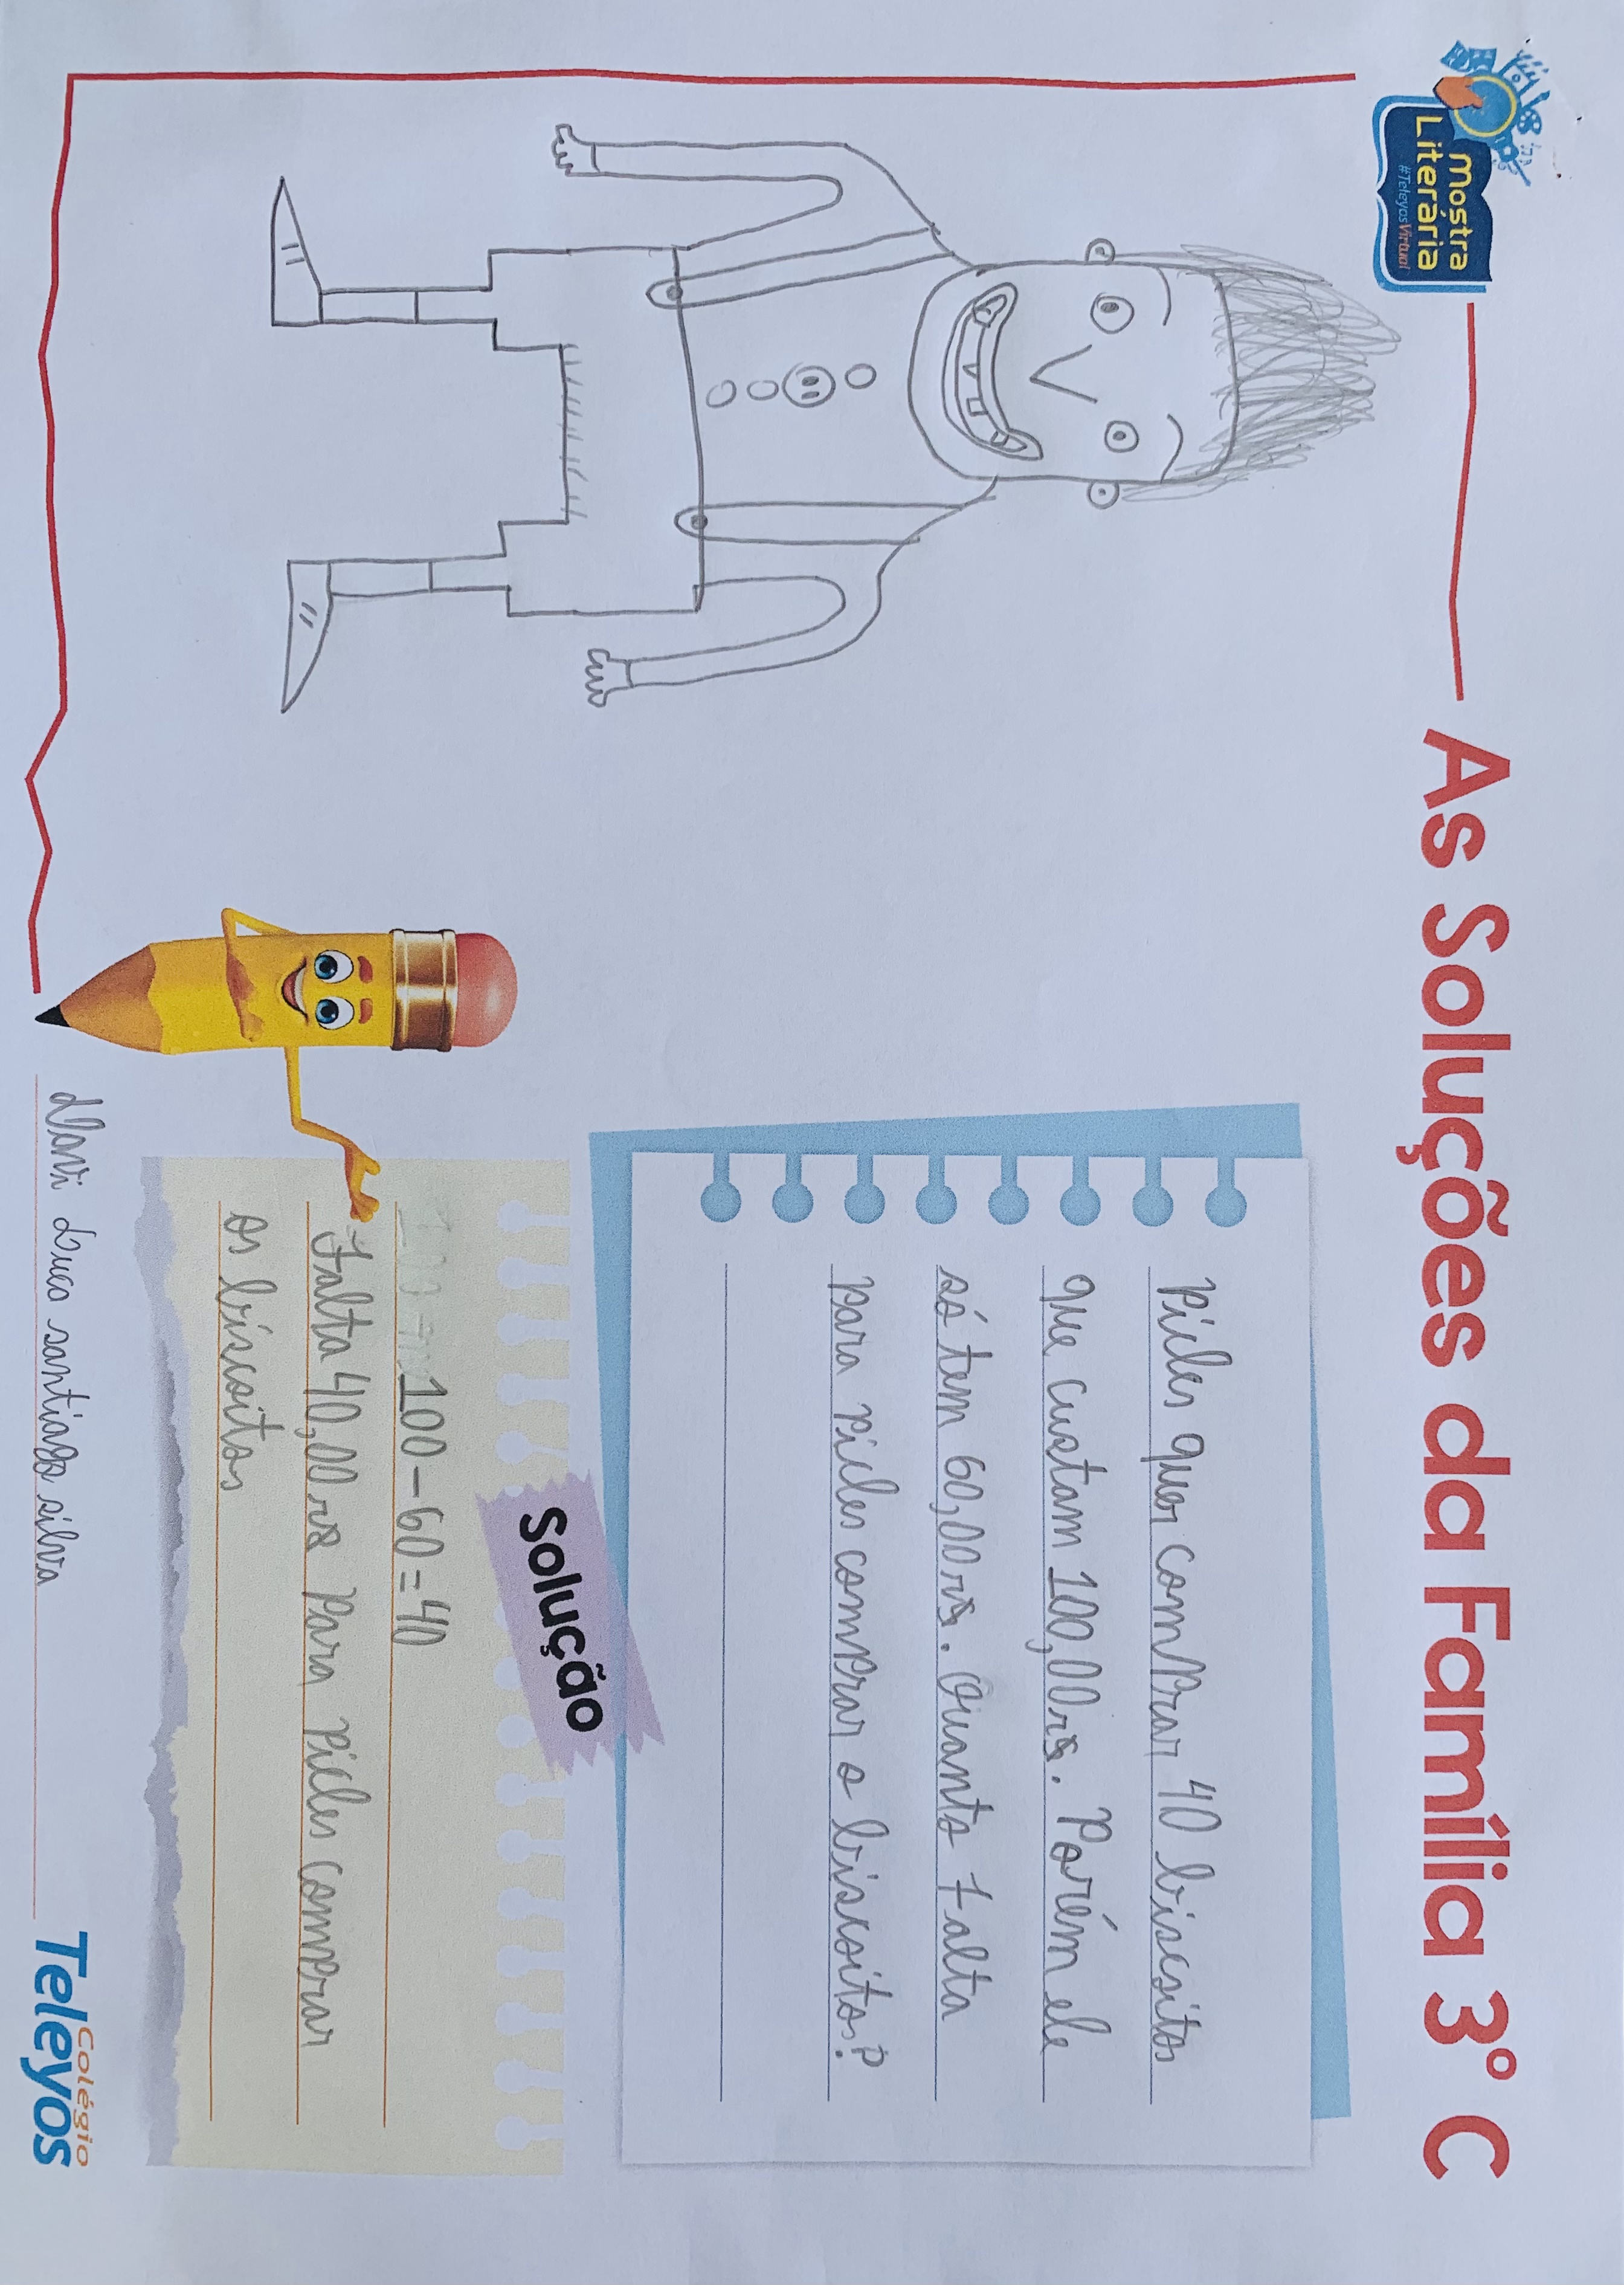 Mostra
Literária
#TeleyosVirtual
As Soluções da Família 3º C
Picles quer comprar 40 biscoitos
que custam 100,00rs. Porém ele
só tem 60,00rs. Quanto falta
para picles comprar o biscoitos?
Solução
100-60=40
falta 40,00rs Para Picles comprar
os biscoitos
Davi Luca santiago silva
Colégio
Teleyos